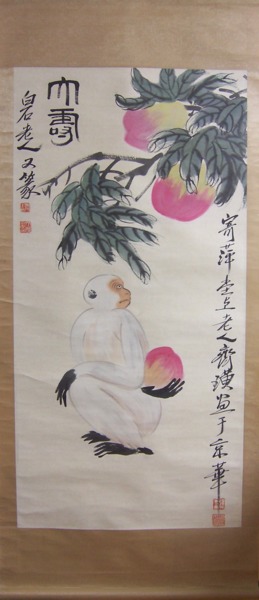 大壽
白石老人又篆
寄萍堂上老人齊璜畫于京華